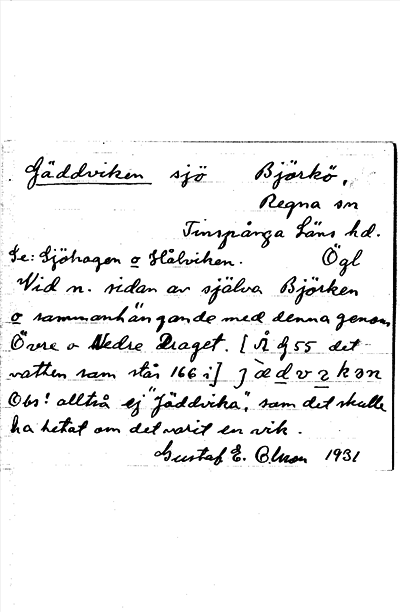 Gäddviken sjö Björkö,
Regna sn
Finspånga Läns hd.
Se: Sjöhagen o Hålviken. Ögl
Vid n. sidan av själva Björken
o sammanhängande med denna genom
Övre o Nedre Draget. [ 55 det
vatten som står 166 i] jædvıkən
Obs! alltså ej "Jäddvika", som det skulle
ha hetat om det varit en vik.
Gustaf E. Olson 1931